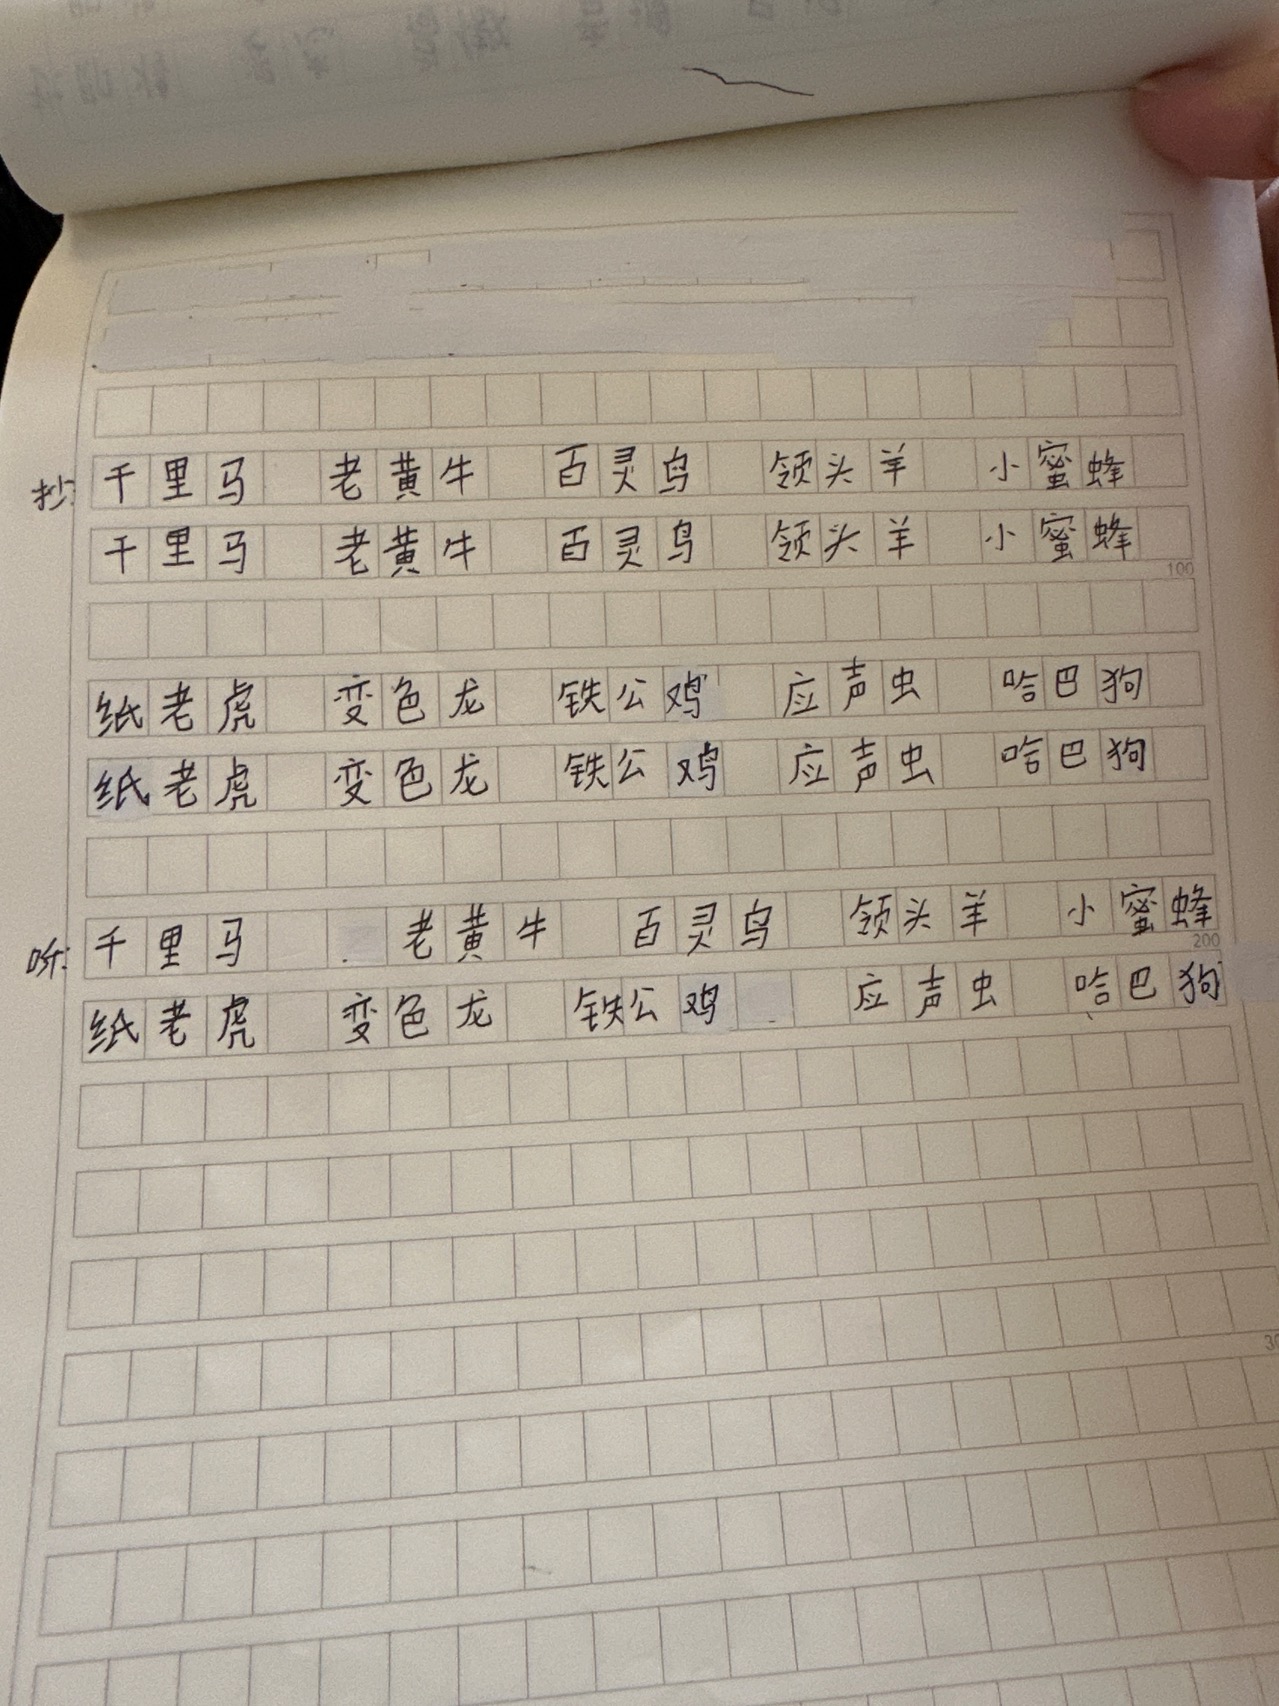 抄: 千里马 老黄牛 百灵鸟 领头羊 小蜜蜂
千里马 老黄牛 百灵鸟 领头羊 小蜜蜂
100
纸老虎 变色龙 铁公鸡 应声虫 哈巴狗
纸老虎 变色龙 铁公鸡 应声虫 哈巴狗
千里马 老黄牛 百灵鸟 领头羊 小蜜蜂
200
纸老虎 变色龙 铁公鸡 应声虫 哈巴狗